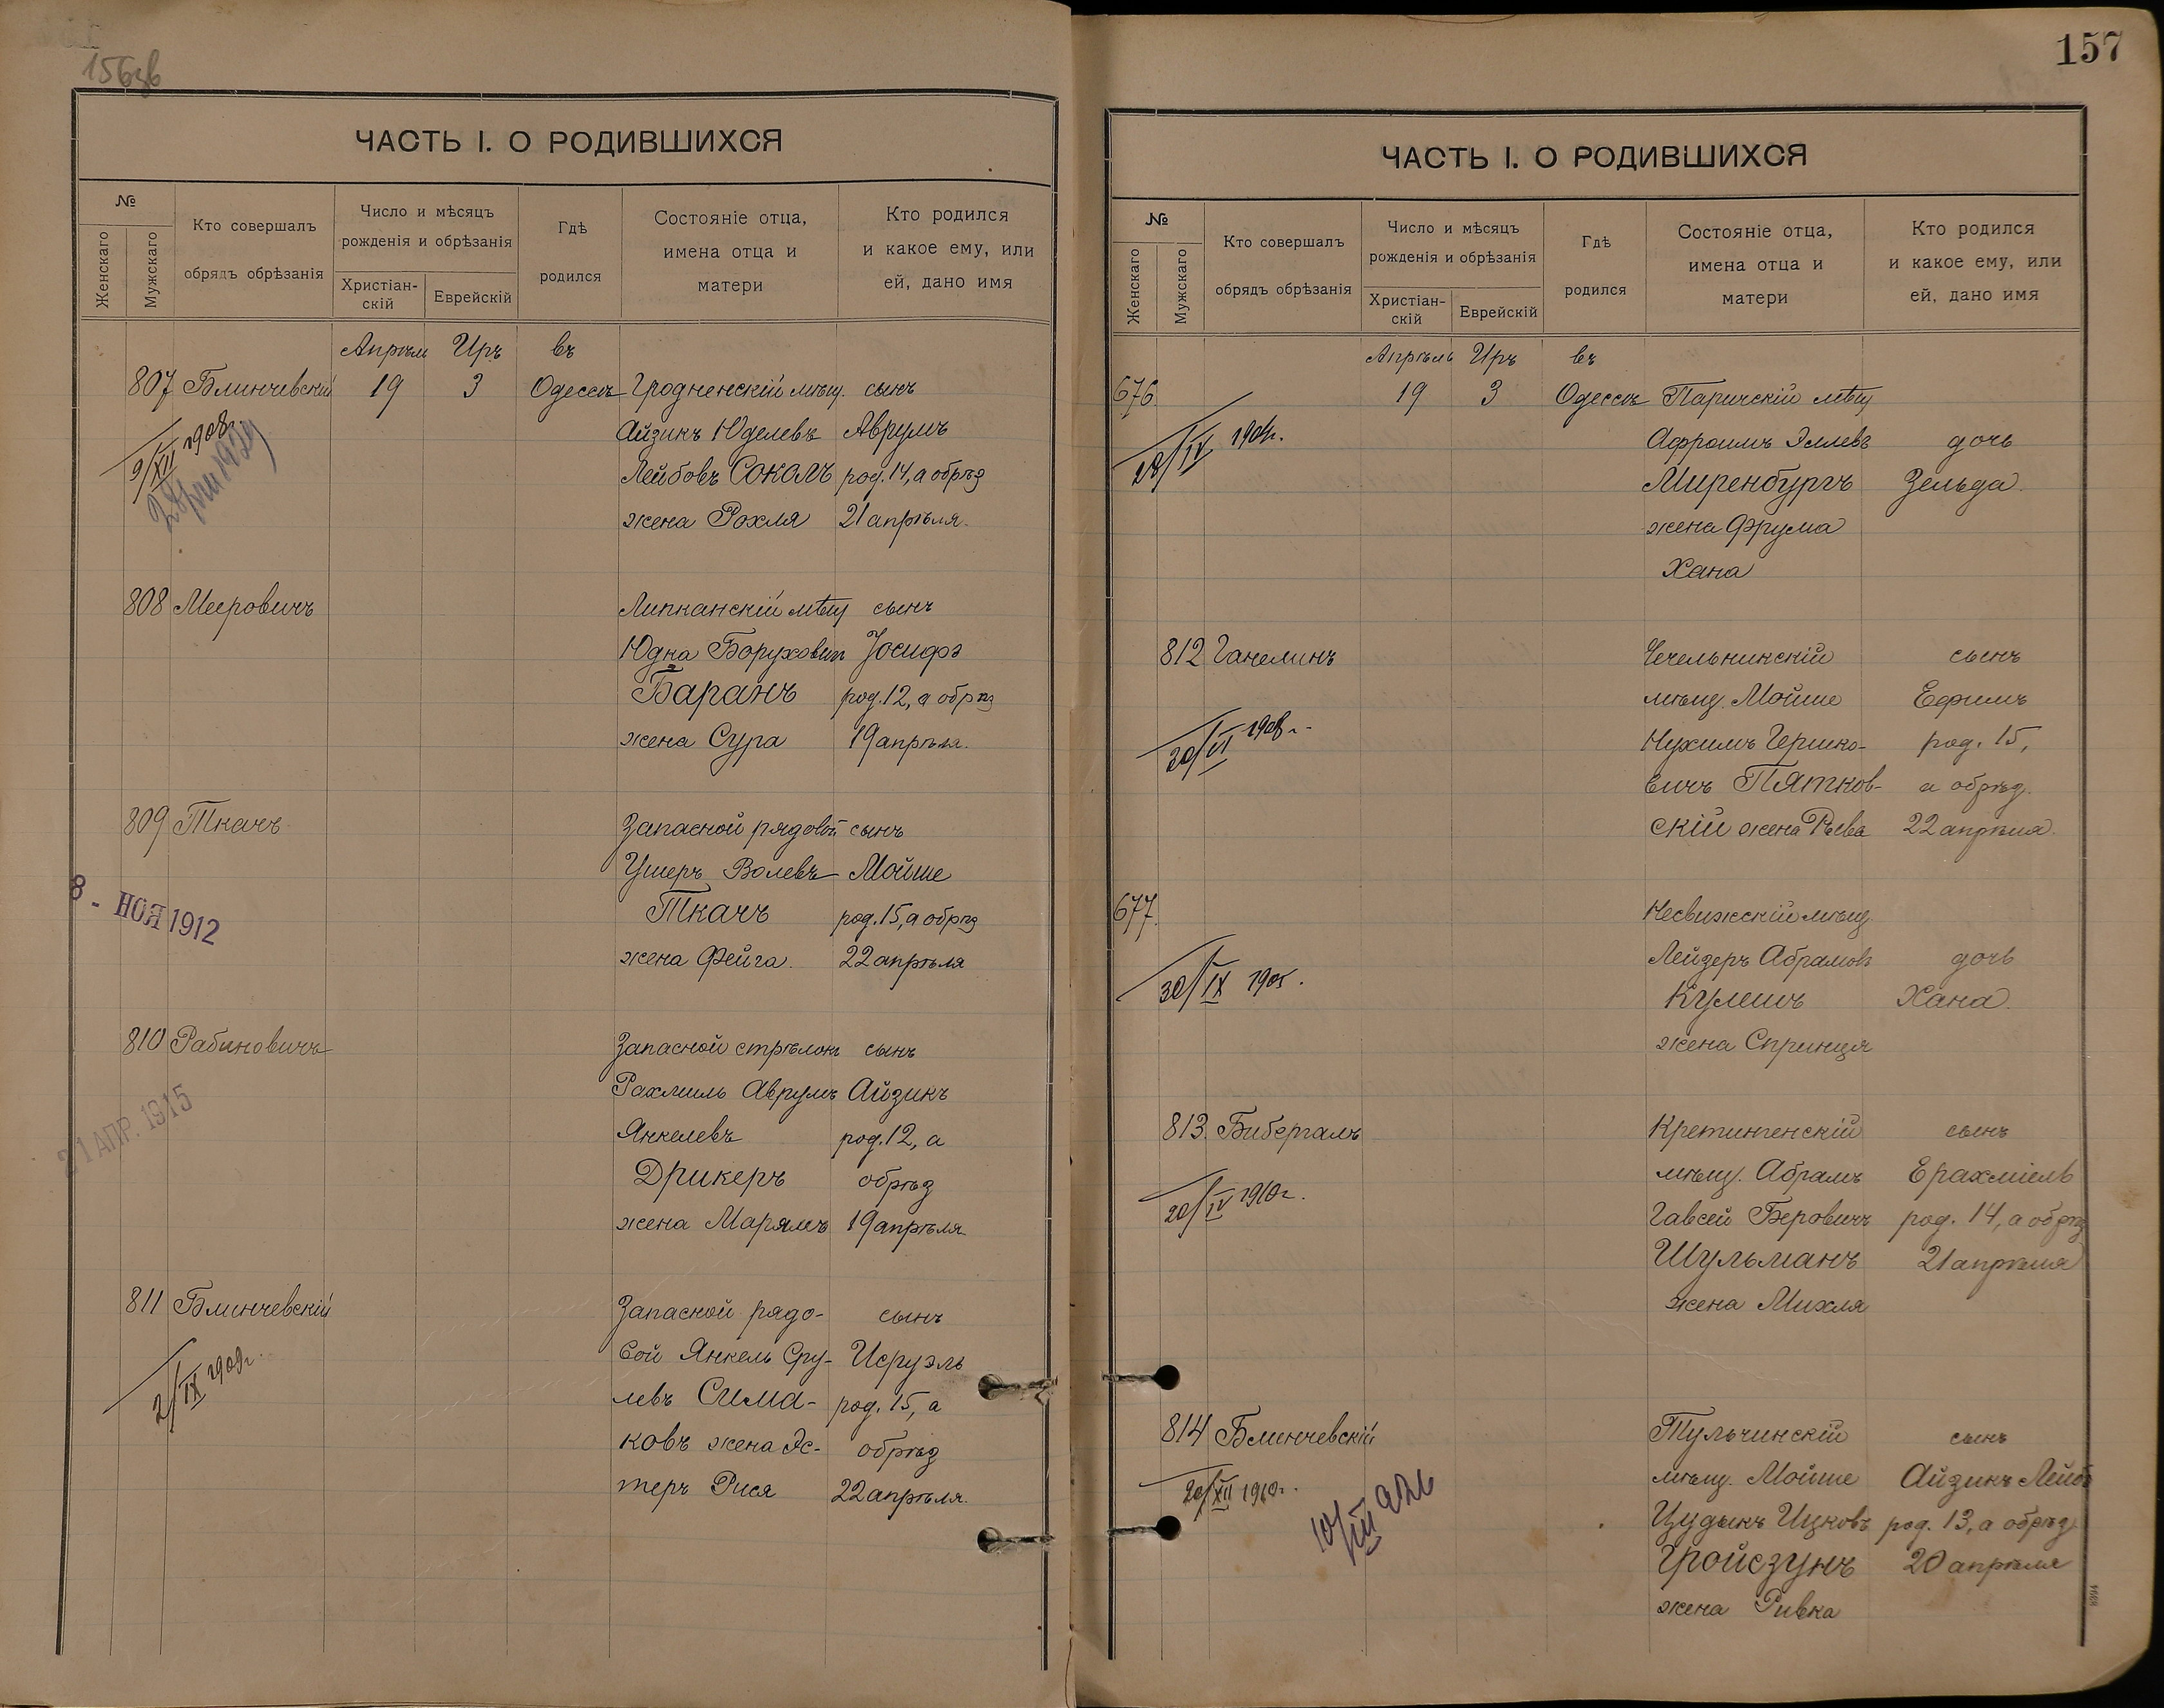 156зв
ЧАСТЬ I. О РОДИВШИХСЯ
№
Женскаго
Мужскаго
Кто совершалъ
обрядъ обрѣзанія
Число и мѣсяцъ
рожденія и обрѣзанія
Христіан-
скій
Еврейскій
Гдѣ
родился
Состояніе отца,
имена отца и
матери
Кто родился
и какое ему, или
ей, дано имя
Апрѣль Иръ въ
807 Блинчевскій 19 3 Одессѣ Гродненскій мѣщ. сынъ
Айзикъ Юделевъ Аврумъ
Лейбовъ Соколъ род. 14, а обрѣз
жена Рохля 21 апрѣля.
9/XII 1908г.
808 Мееровичъ Липканскій мѣщ сынъ
Юдка Боруховъ Іосифъ
Баранъ род. 12, а обрѣз
жена Сура 19 апрѣля.
809 Ткачъ Запасной рядовой сынъ
Ушеръ Волевъ Мойше
Ткачъ род. 15, а обрѣз
жена Фейга. 22 апрѣля
8 - НОЯ 1912
810 Рабиновичъ Запасной стрѣлокъ сынъ
Рахмиль Аврумъ Айзикъ
Янкелевъ род. 12, а
Дрикеръ обрѣз
жена Марямъ 19 апрѣля
21 АПР. 1915
811 Блинчевскій Запасной рядо- сынъ
вой Янкель Сру- Исруэль
левъ Сима- род. 15, а
ковъ жена Эс- обрѣз
теръ Рися 22 апрѣля.
2/IX 1909г.
157
ЧАСТЬ I. О РОДИВШИХСЯ
№
Женскаго
Мужскаго
Кто совершалъ
обрядъ обрѣзанія
Число и мѣсяцъ
рожденія и обрѣзанія
Христіан-
скій
Еврейскій
Гдѣ
родился
Состояніе отца,
имена отца и
матери
Кто родился
и какое ему, или
ей, дано имя
Апрѣль Иръ въ
676. 19 3 Одессѣ Паричскій мѣщ
Афроимъ Эллевъ дочь
Миренбургъ Зельда.
жена Фрума
Хана
812 Ганелинъ Чечельникскій сынъ
мѣщ. Мойше Ефимъ
Нухимъ Гершко- род. 15,
вичъ Пятков- а обрѣз.
скій жена Рыва 22 апрѣля.
20/VI 1908г.
677. Несвижскій мѣщ.
Лейзеръ Абрамовъ дочь
Кулешъ Хана.
жена Спринця
30/IX 1905.
813. Бибергалъ Кретингенскій сынъ
мѣщ. Абрамъ Ерахміель
Гавсей Беровичъ род. 14, а обрѣз
Шульманъ 21 апрѣля
жена Михля
20/IV 1910г.
814 Блинчевскій Тульчинскій сынъ
мѣщ. Мойше Айзикъ Лейбъ
Цудыкъ Ицковъ род. 13, а обрѣз
Гройсзунъ 20 апрѣля
жена Ривка
20/XII 1910г.